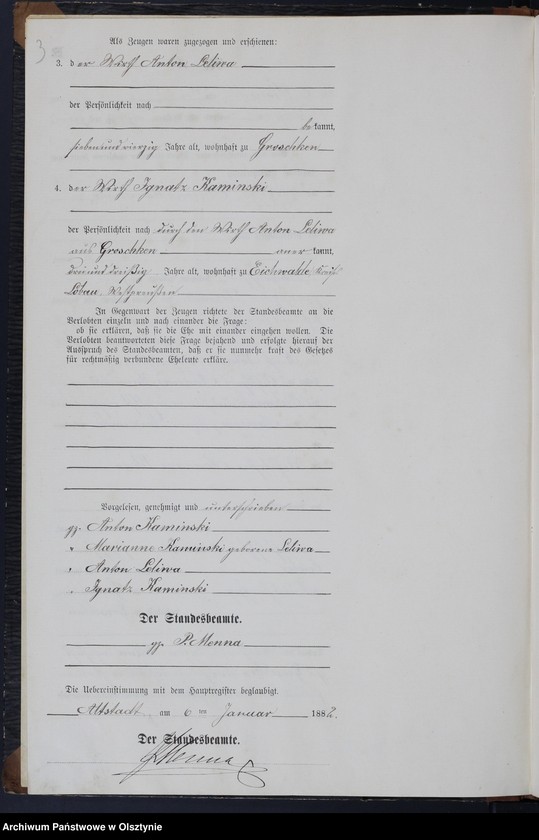 3
Als Zeugen waren zugezogen und erschienen:
3. der Wirth Anton Leliwa
der Persönlichkeit nach
bekannt,
siebenundvierzig Jahre alt, wohnhaft zu Groschken
4. der Wirth Ignatz Kaminski
der Persönlichkeit nach durch den Wirth Anton Leliwa
aus Groschken anerkannt,
dreiunddreißig Jahre alt, wohnhaft zu Eichwalde Kreis
Löbau, Westpreußen
In Gegenwart der Zeugen richtete der Standesbeamte an die
Verlobten einzeln und nach einander die Frage:
ob sie erklären, daß sie die Ehe mit einander eingehen wollen. Die
Verlobten beantworteten diese Frage bejahend und erfolgte hierauf der
Ausspruch des Standesbeamten, daß er sie nunmehr kraft des Gesetzes
für rechtmäßig verbundene Eheleute erkläre.
Vorgelesen, genehmigt und unterschrieben
gz. Anton Kaminski
" Marianne Kaminski geborene Leliwa
" Anton Leliwa
" Ignatz Kaminski
Der Standesbeamte.
gz. P. Monna
Die Uebereinstimmung mit dem Hauptregister beglaubigt.
Altstadt am 6ten Januar 1882.
Der Standesbeamte.
Monna
Archiwum Państwowe w Olsztynie